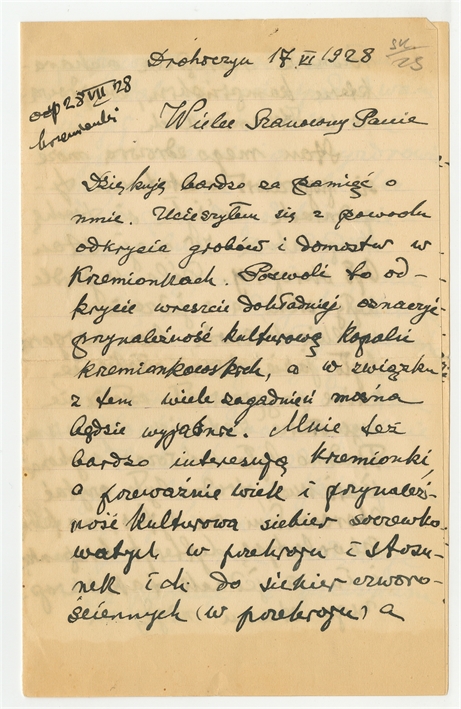 Drohiczyn 17 VI 1928
SK.
odp 28 VII 28
Wielce Szanowny Panie
Dziękuję bardzo za pamięć o
mnie. Ucieszyłem się z powodu
odkrycia grobów i domostw w
Krzemionkach. Pozwoli to od-
krycie wreszcie dokładniej oznaczyć
przynależność kulturową kopalń
krzemionkowskich, a w związku
z tem wiele zagadnień można
będzie wyjaśnić. Mnie też
bardzo interesują Krzemionki,
a przeważnie wiek i przynależ-
ność kulturowa siekier soczewko-
watych w przekroju i stosu-
nek ich do siekier czworo-
ściennych (w przekroju) a